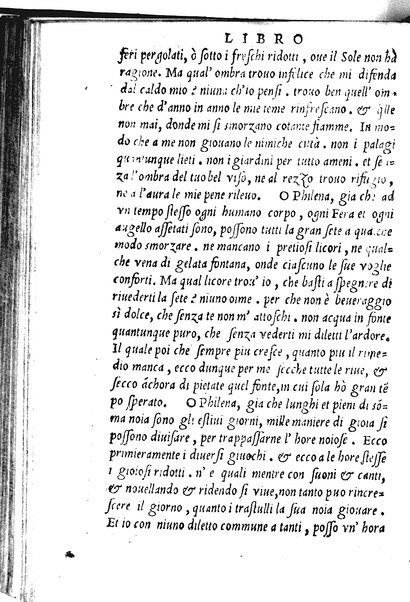 LIBRO
feri pergolati, ò sotto i freschi ridotti, oue il Sole non hà
ragione. Ma qual' ombra trouo infelice che mi difenda
dal caldo mio è niuna ch'io pensi. trouo ben quell' om-
bre che d'anno in anno le mie teme rinfrescano. & q̃lle
non mai, donde mi si smorzano cotante fiamme. In mo-
do che a me non giouano le nimiche città. non i palagi
quantunque lieti. non i giardini per tutto ameni. et se
za l'ombra del tuo bel viso, ne al rezzo trouo rifugio,
ne a l'aura le mie pene rileuo. O Philena, gia che ad
vn tempo stesso ogni humano corpo, ogni Fera et ogni
augello assetati sono, possono tutti la gran sete a qualche
modo smorzare. ne mancano i pretiosi licori, ne qual-
che vena di gelata fontana, onde ciascuno le sue voglie
conforti. Ma qual licore trou' io, che basti a spegnere di
riuederti la sete è niuno oime. per che non è beueraggio
sì dolce, che senza te non m' attoschi. non acqua in fonte
quantunque puro, che senza vederti mi diletti l'ardore.
Il quale poi che sempre piu cresce, quanto piu il rime-
dio manca, ecco dunque per me secche tutte le riue, &
secco ãchora di pietate quel fonte, in cui sola hò gran tẽ
po sperato. O Philena, gia che lunghi et pieni di sõ-
ma noia sono gli estiui giorni, mille maniere di gioia si
possono diuisare, per trappassarne l' hore noiose. Ecco
primieramente i diuersi giuochi. & ecco a le hore stesse
i gioiosi ridotti. n' e quali mentre con suoni & canti,
& nouellando & ridendo si viue, non tanto puo rincre-
scere il giorno, quanto i trastulli la sua noia giouare.
Et io con niuno diletto commune a tanti, posso vn' hora